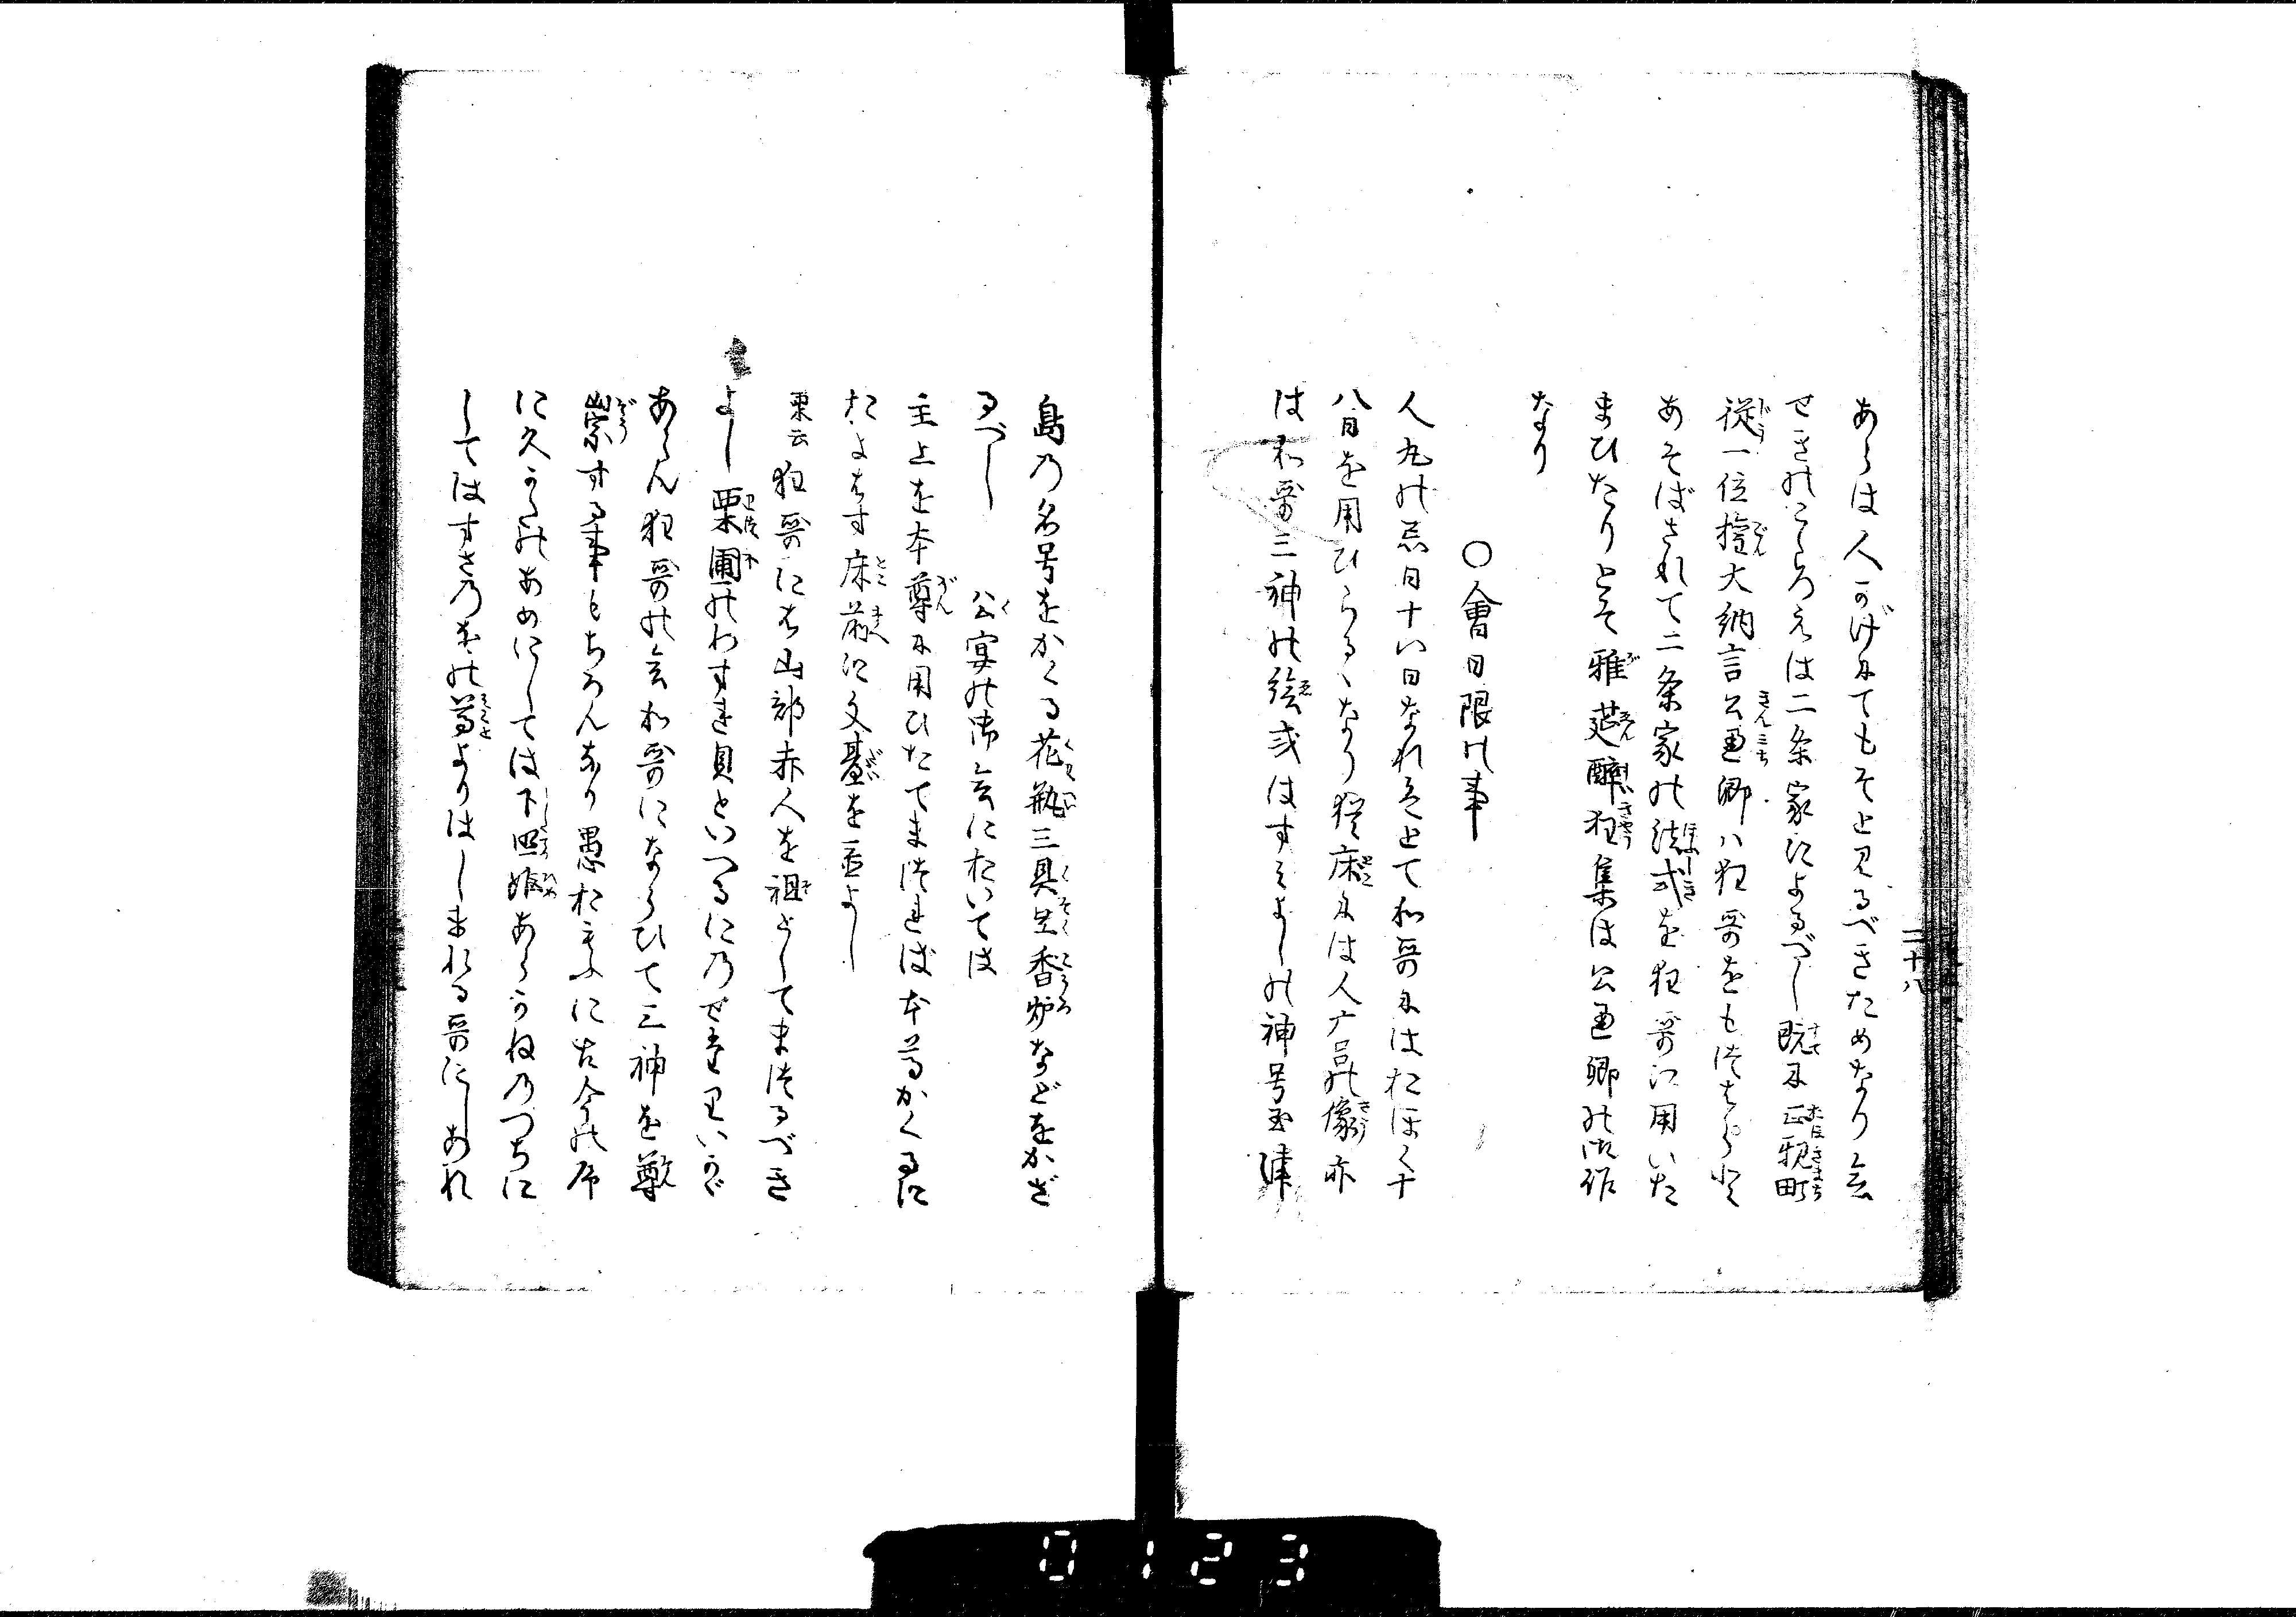 二十八
あらは人のかげにてもそと見るべきためなり会
せきのこゝろえは二条家によるべし既に正親町
従一位権大納言公通卿ハ狂哥をもつはら
あそばされて二条家の法式を狂哥に用いた
まひたりとそ雅莚酔狂集は公通卿の御作
なり
〇會日限の事
人丸の忌日十八日なれはとて和哥にはおほく十
八日を用ひらるゝなり猶床には人丸の像亦
は和哥三神の絵或はすみよしの神号玉津
島の名号をかくる花瓶三具足香炉などをかざ
るべし　公宴の御会においては
主上を本尊に用ひたてまつれば本尊かくるに
およばす床前に文臺を置よし
栗云狂哥には山部赤人を祖としてまつるべき
よし栗圃のわすれ貝といへるにのせたりいかゞ
あらん狂哥の会和哥にならひて三神を尊
崇する事もちろんなり愚おもふに古今の序
に久かたのあめにしては下照姫あらかねのつちに
してはすさのをの尊よりはしまれる哥にしあれ
0123